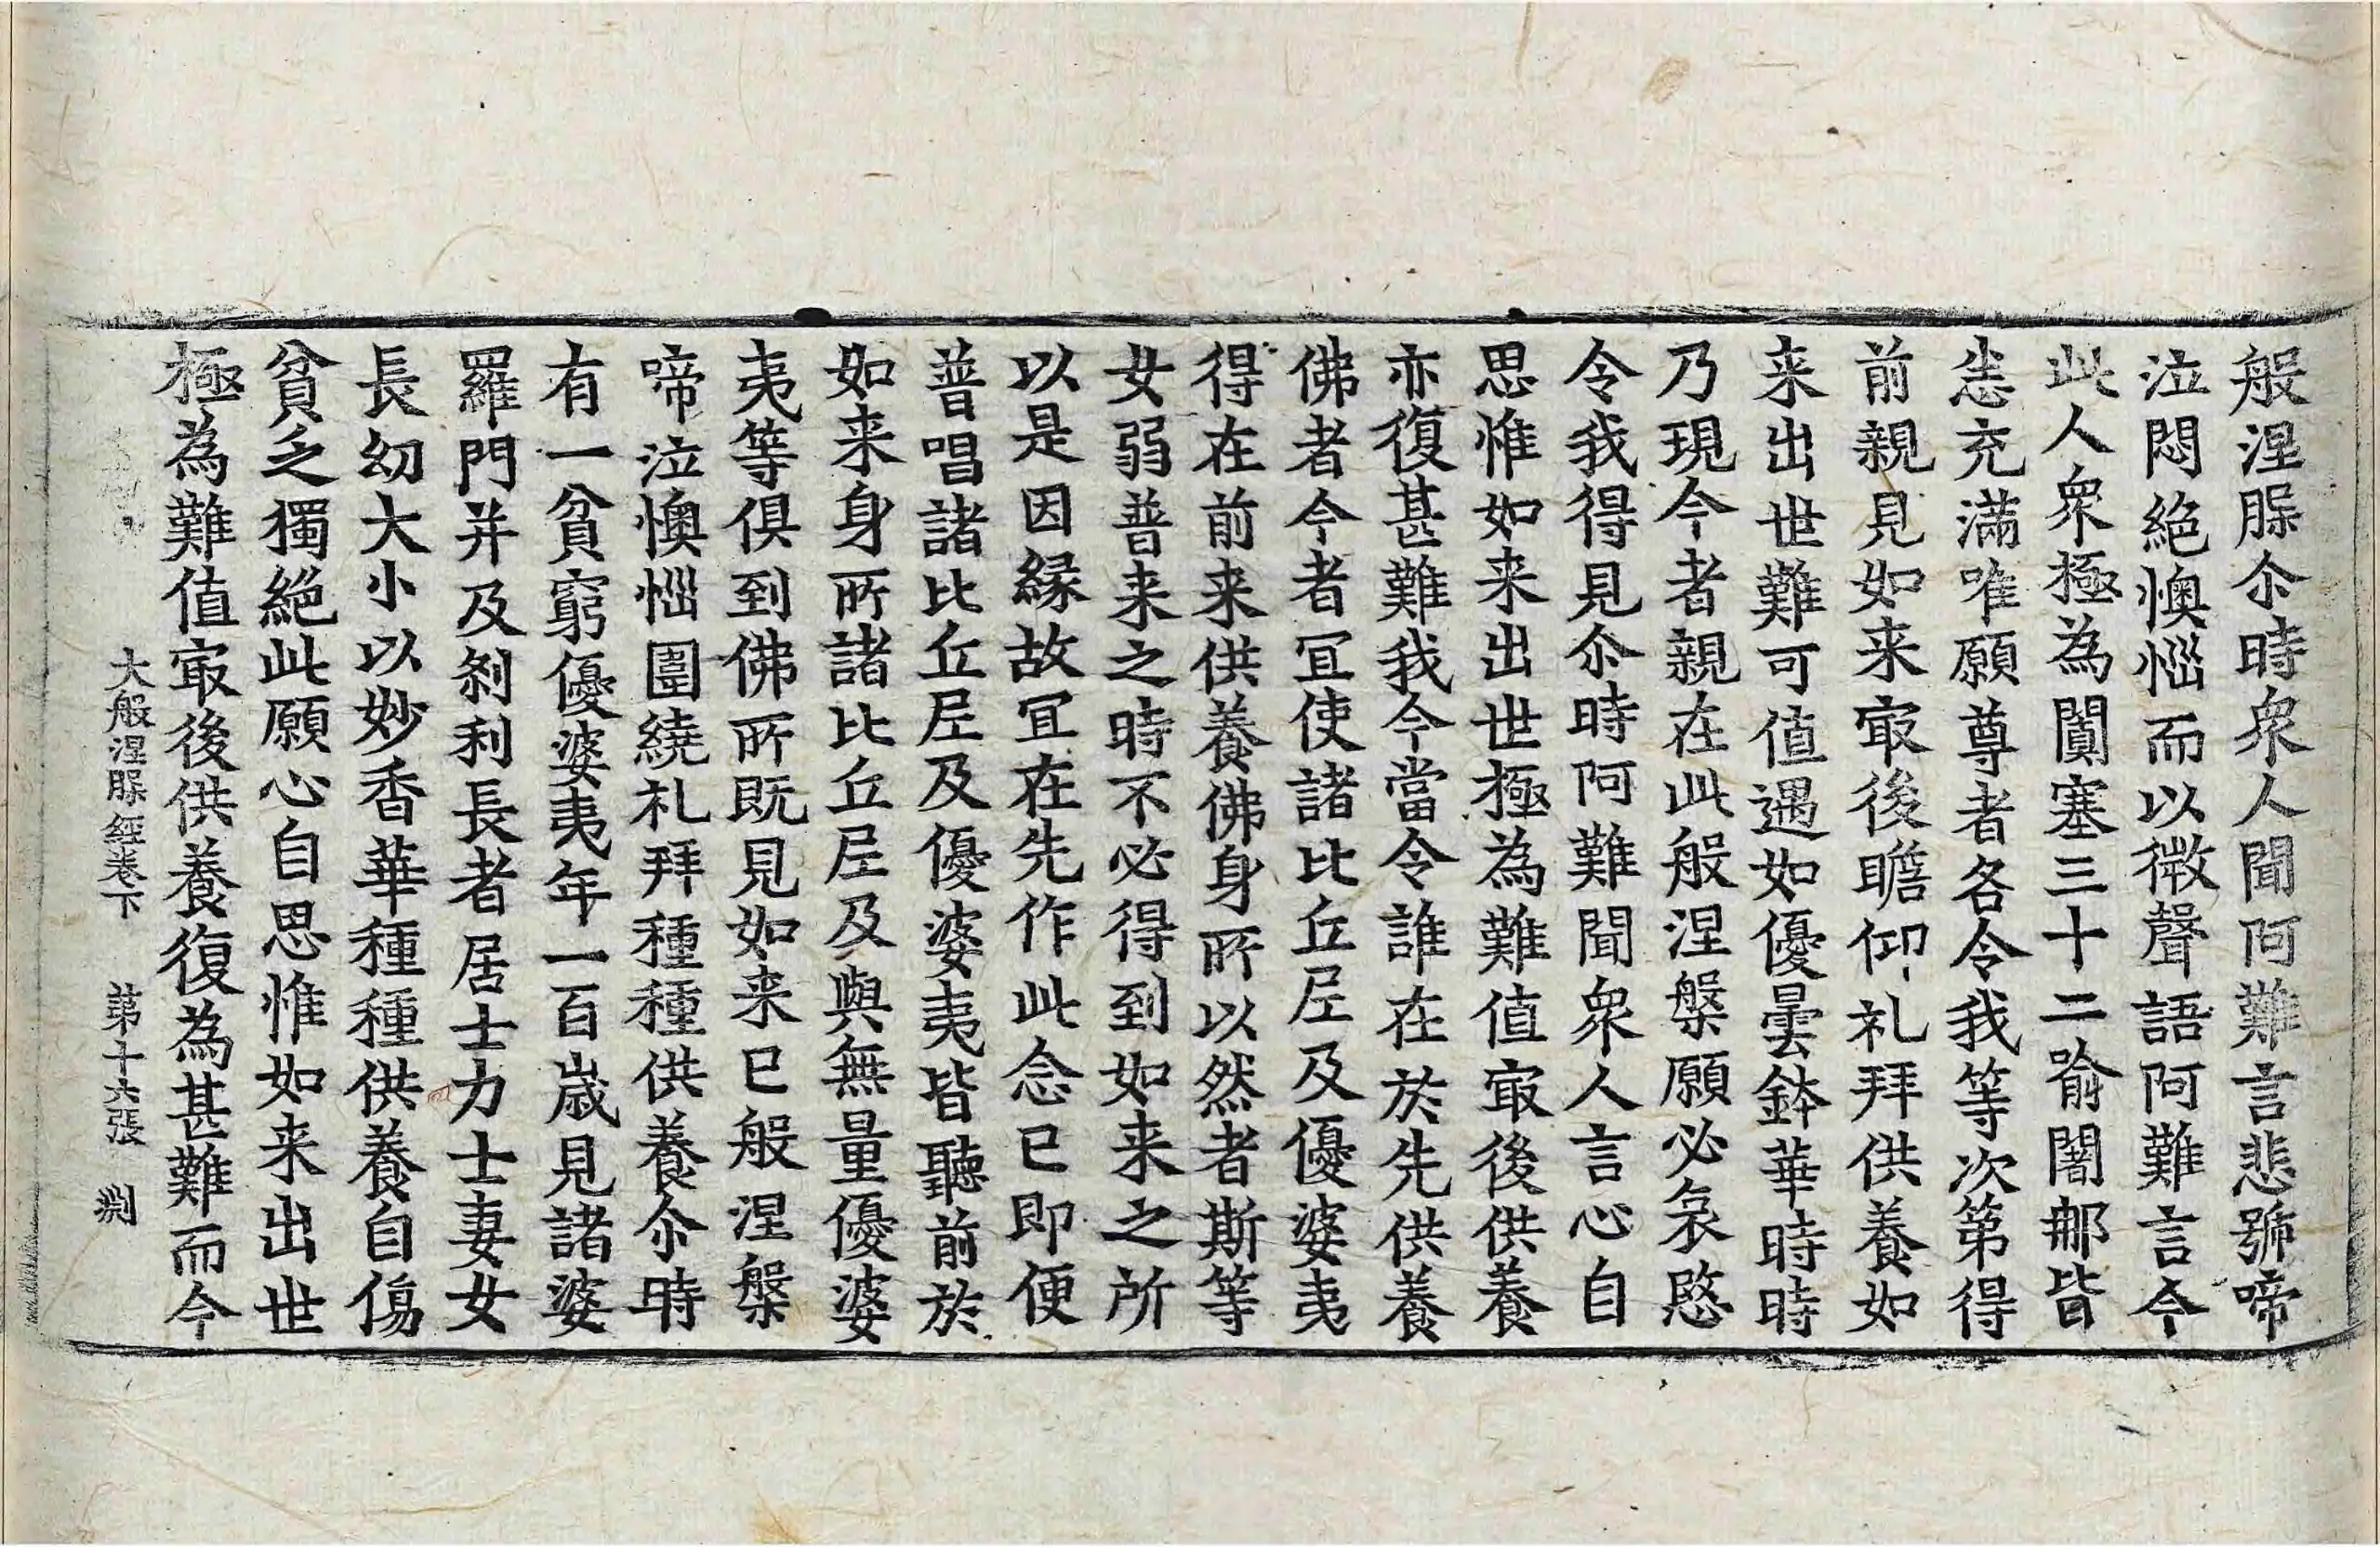 般涅脲尒時衆人聞阿難言悲號啼
泣悶絕懊惱而以微聲語阿難言今
此人衆極為闐塞三十二踰闍那皆
悉充滿唯願尊者各令我等次第得
前親見如来㝡後瞻仰礼拜供養如
来出世難可值遇如優曇鉢華時時
乃現今者親在此般涅槃願必哀愍
令我得見尒時阿難聞衆人言心自
思惟如来出世極為難值㝡後供養
亦復甚難我今當令誰在於先供養
佛者今者冝使諸比丘尼及優婆夷
得在前来供養佛身所以然者斯等
女弱普来之時不必得到如来之所
以是因緣故冝在先作此念已即便
普唱諸比丘尼及優婆夷皆聽前於
如来身所諸比丘尼及與無量優婆
夷等俱到佛所既見如来已般涅槃
啼泣懊惱圍繞礼拜種種供養尒時
有一貧窮優婆夷年一百歲見諸婆
羅門并及剎利長者居士力士妻女
長幼大小以妙香華種種供養自傷
貧乏獨絕此願心自思惟如来出世
極為難值㝡後供養復為甚難而今
大般涅脲經卷下 第十六張